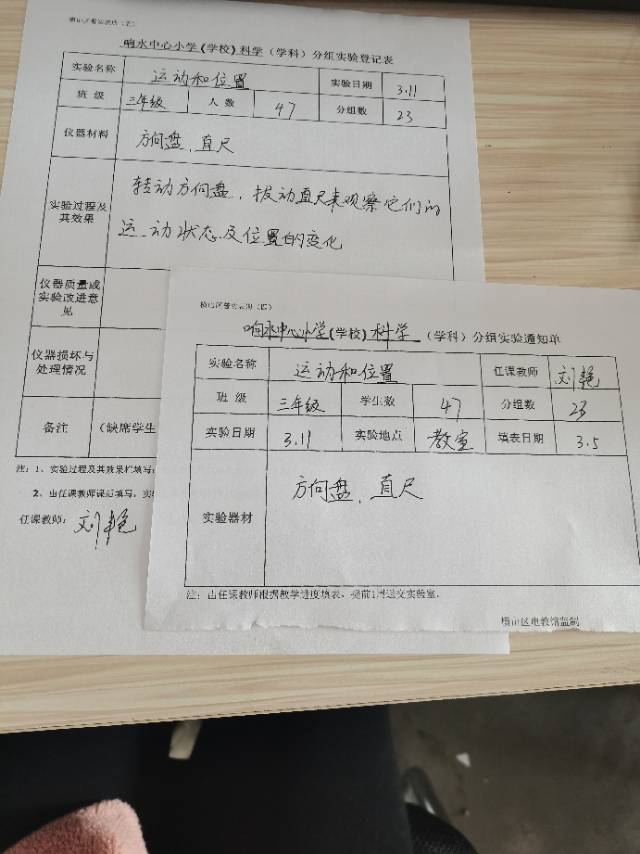 响水中心小学(学校)科学(学科)分组实验登记表
实验名称 运动和位置 实验日期 3.11
班 级 三年级 人 数 47 分组数 23
仪器材料 方向盘、直尺
实验过程及其效果 转动方向盘,拔动直尺来观察它们的
运动状态及位置的变化
仪器质量或实验改进意见
仪器损坏与处理情况
备注 (缺席学生
注:1、实验过程及其效果栏填写:
2、由任课教师课后填写,实
任课教师: 刘艳
响水中心小学(学校)科学(学科)分组实验通知单
实验名称 运动和位置 任课教师 刘艳
班 级 三年级 学生数 47 分组数 23
实验日期 3.11 实验地点 教室 填表日期 3.5
实验器材 方向盘、直尺
注:由任课教师根据教学进度填表,提前1周送交实验室。
横山区电教馆监制